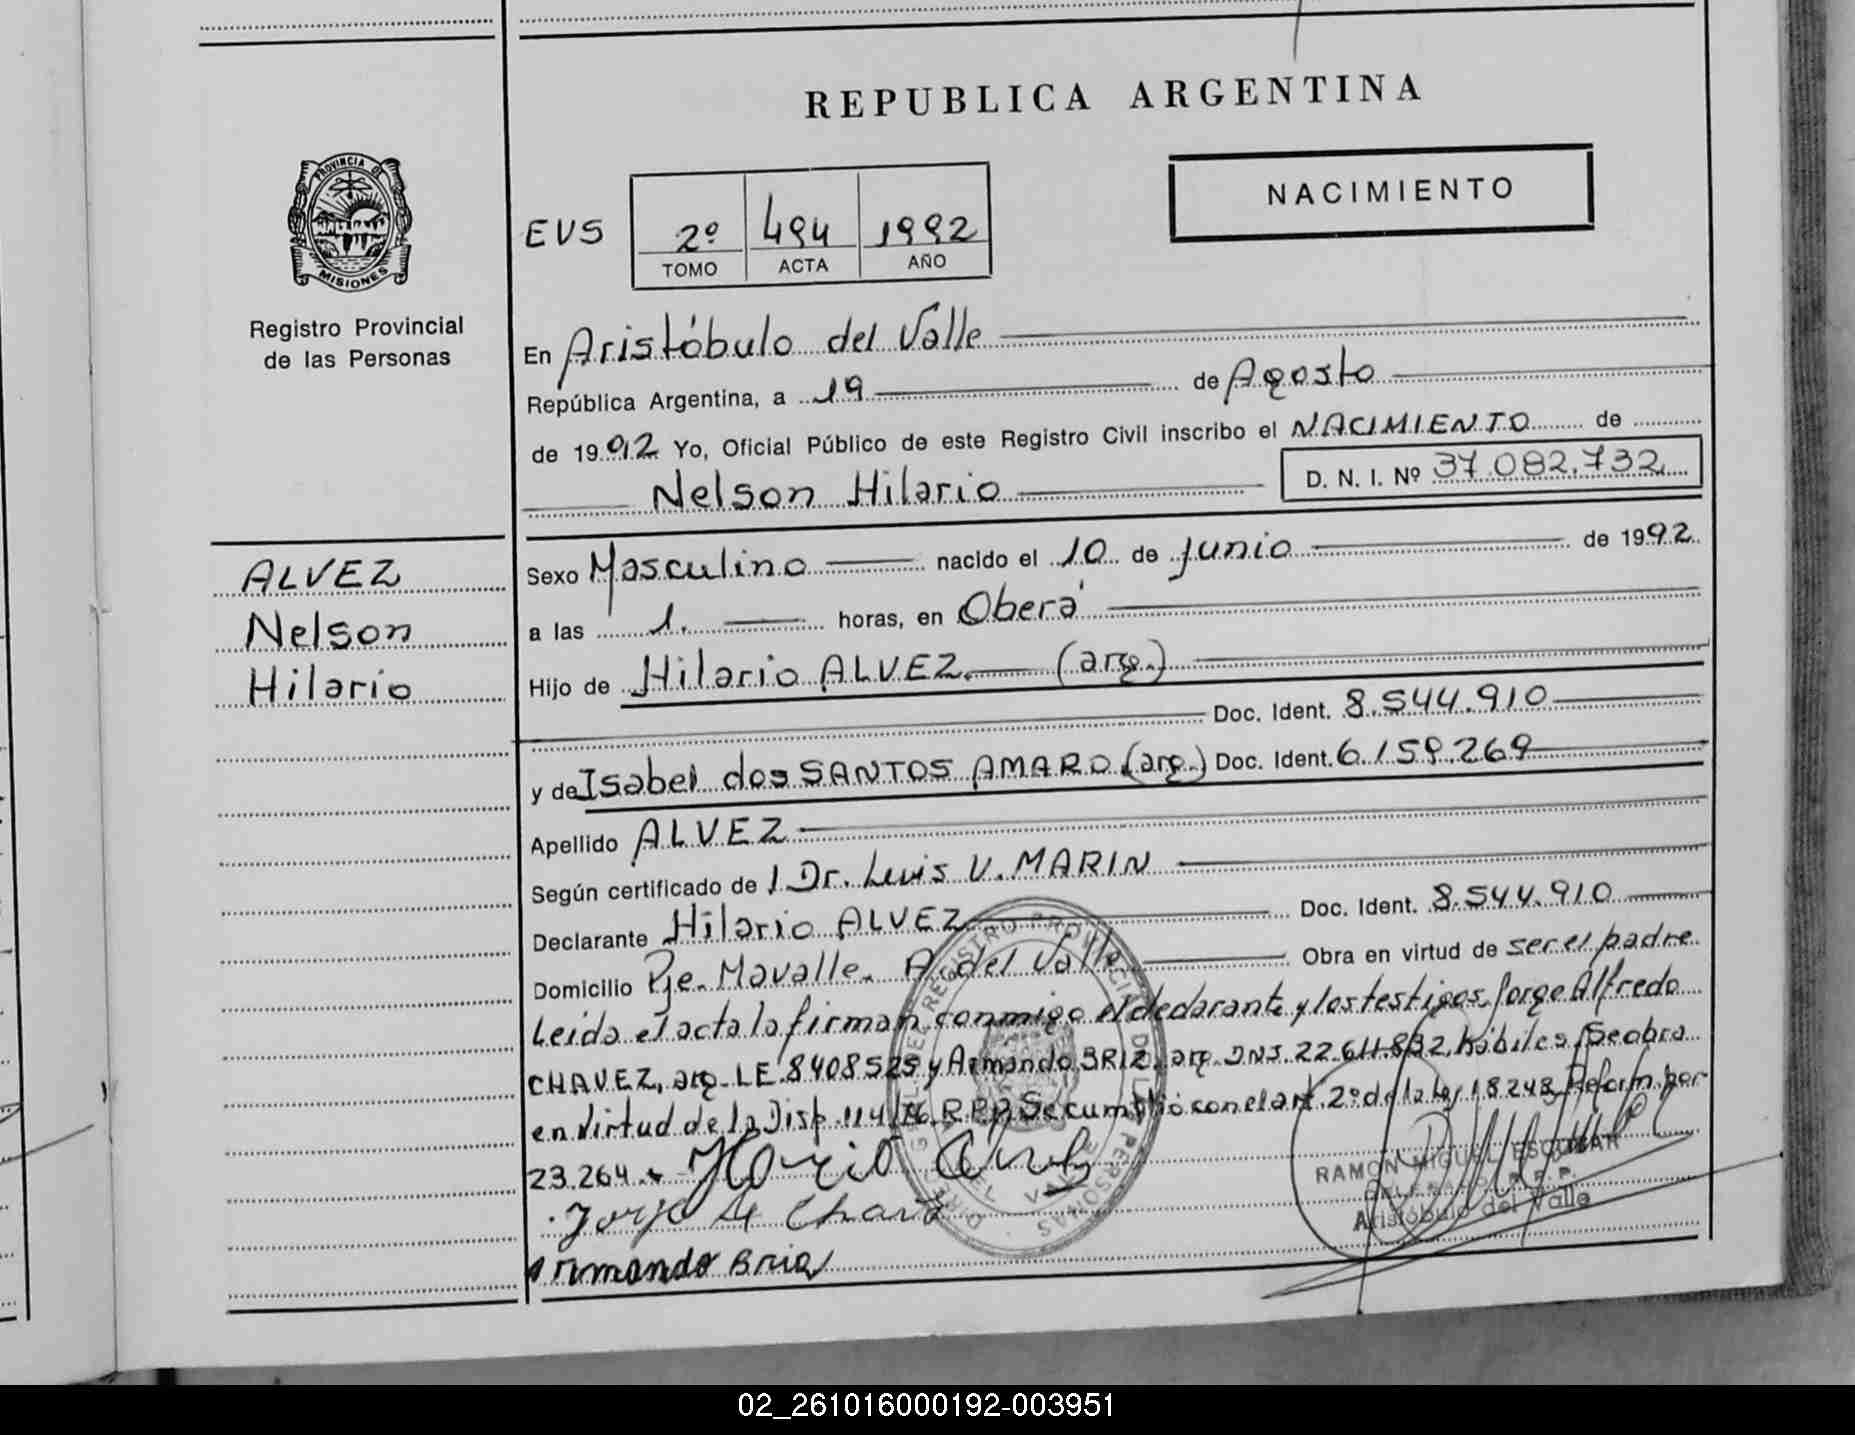 REPUBLICA ARGENTINA
PROVINCIA DE
MISIONES
Registro Provincial
de las Personas
NACIMIENTO
EVS
2º 494 1992
TOMO ACTA AÑO
En Aristóbulo del Valle
República Argentina, a 19 de Agosto
de 1992 Yo, Oficial Público de este Registro Civil inscribo el NACIMIENTO de
Nelson Hilario D. N. I. Nº 37.082.732
ALVEZ
Nelson
Hilario
Sexo Masculino nacido el 10 de Junio de 1992
a las 1. horas, en Oberá
Hijo de Hilario ALVEZ (arg.)
Doc. Ident. 8.544.910
y de Isabel dos SANTOS AMARO (arg.) Doc. Ident. 6.159.269
Apellido ALVEZ
Según certificado de Dr. Luis V. MARIN
Declarante Hilario ALVEZ Doc. Ident. 8.544.910
Domicilio Pje. Mavalle. A. del Valle Obra en virtud de ser el padre
Leida el acta la firman conmigo el declarante y los testigos Jorge Alfredo
CHAVEZ, arg. LE 8408525 y Armando BRIZ, arg. DNI. 22.611.832, hábiles. Se obra
en virtud de la Disp. 114/ R.P.P. Se cumplió con el art. 2º de la ley 18248 Reform. por
23.264.
Jorge A Chavez
Armando Bria
RAMON MIGUEL ESCOBAR
DELEGADO R.P.P.
Aristóbulo del Valle
02_261016000192-003951